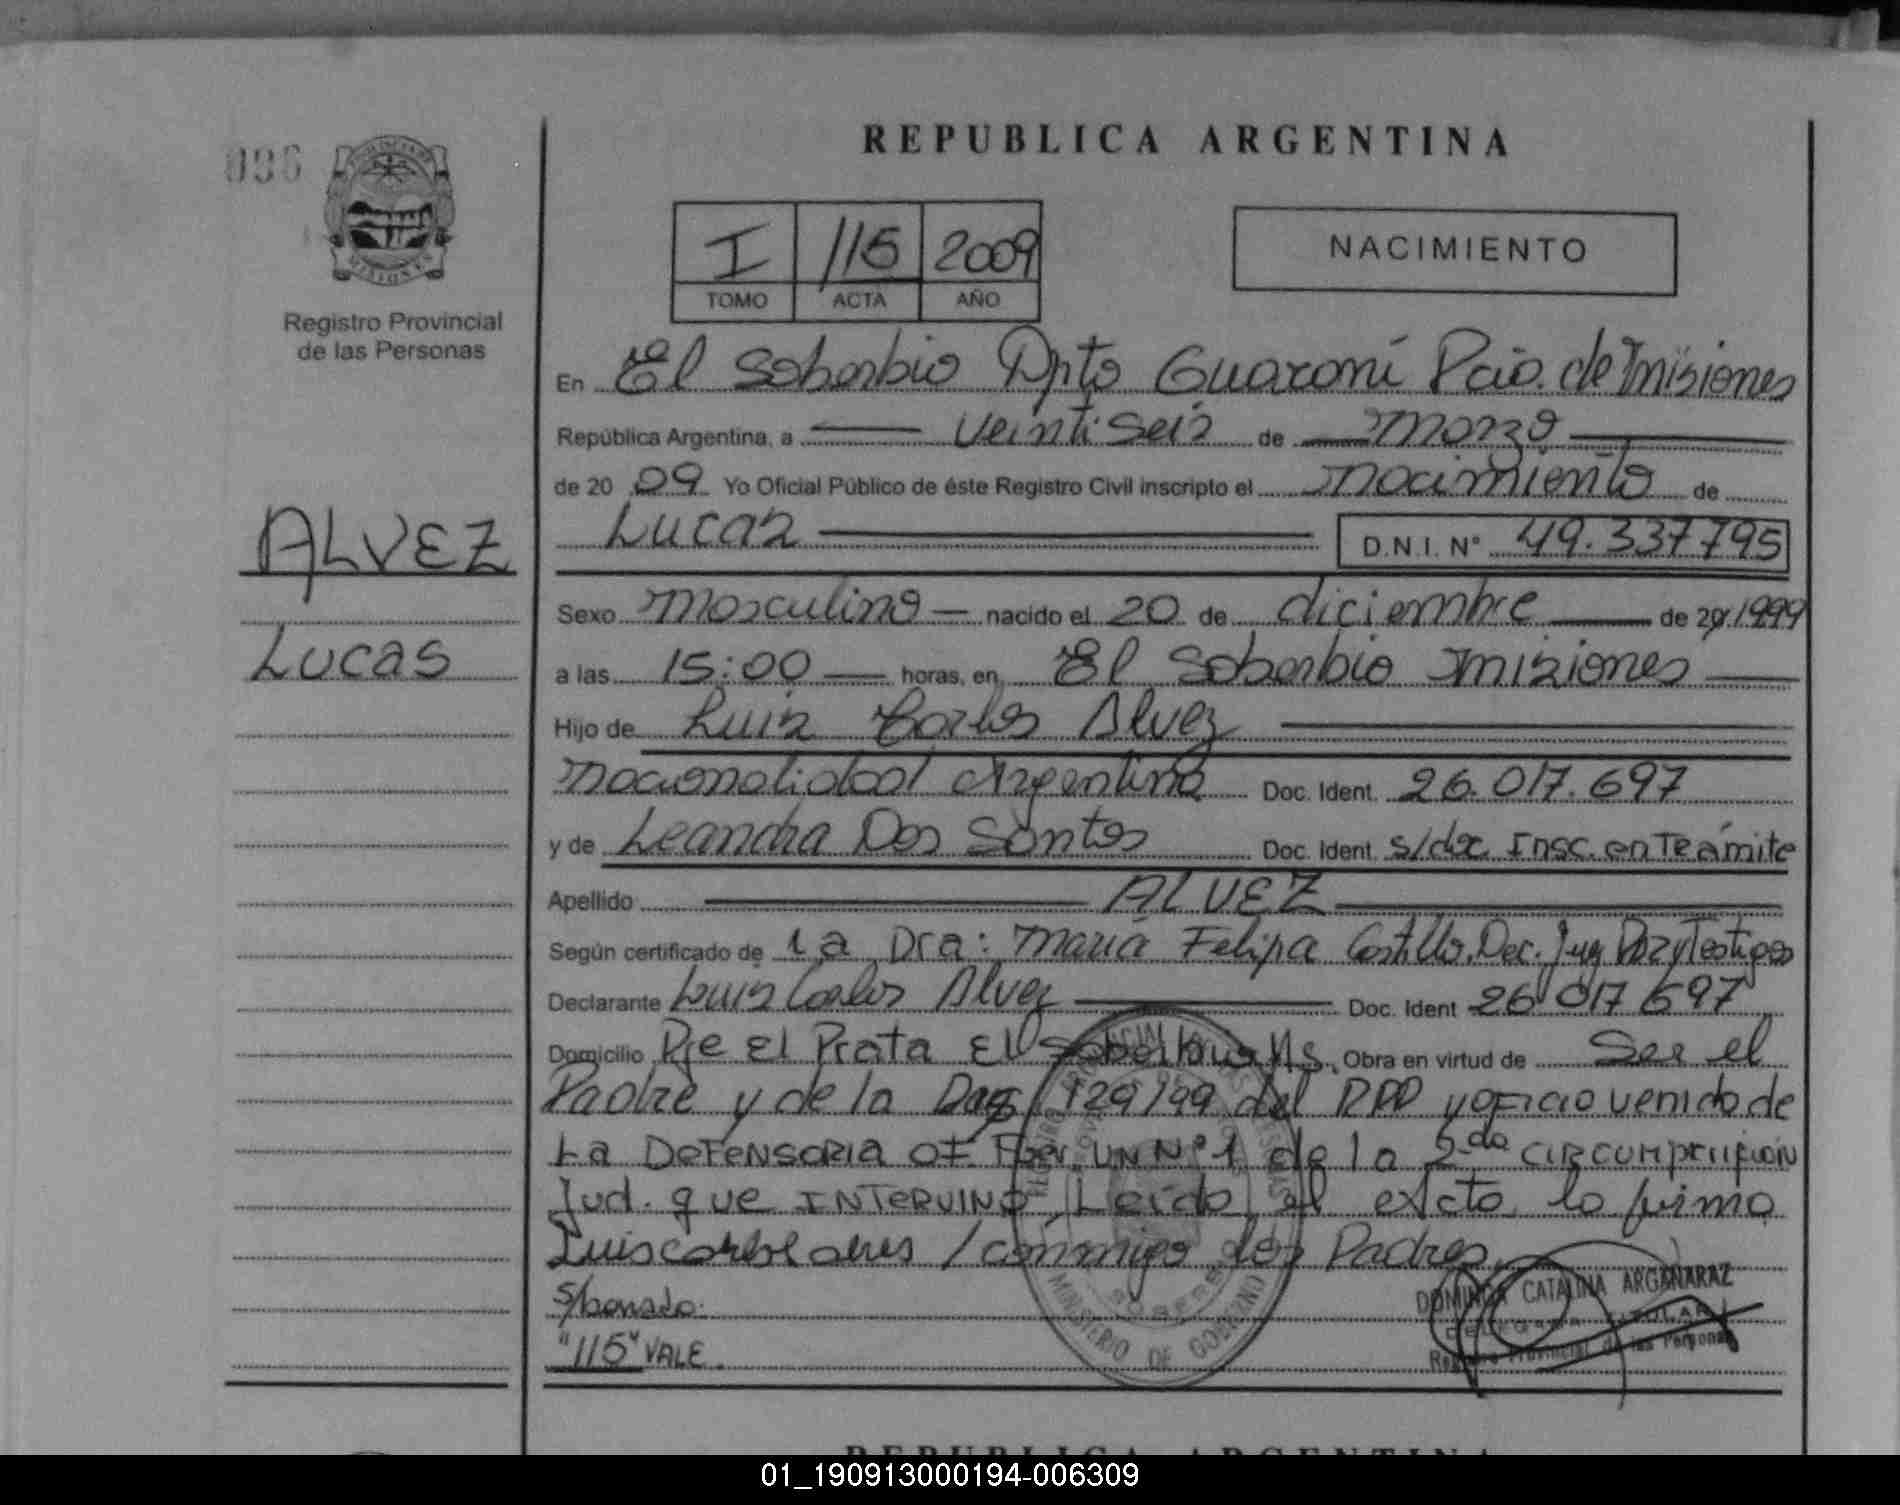 REPUBLICA ARGENTINA
096
I 115 2009
TOMO ACTA AÑO
NACIMIENTO
Registro Provincial
de las Personas
ALVEZ
Lucas
En El Soberbio Dpto Guaraní Pcia. de Misiones
República Argentina, a veintiseis de marzo
de 2009 Yo Oficial Público de éste Registro Civil inscripto el nacimiento de
Lucas D.N.I. Nº 49.337795
Sexo masculino nacido el 20 de diciembre de 20/1999
a las 15:00 horas, en El Soberbio Misiones
Hijo de Luis Carlos Alvez
nacionalidad Argentina Doc. Ident. 26.017.697
y de Leandra Dos Santos Doc. Ident. s/doc Insc. en Trámite
Apellido ALVEZ
Según certificado de La Dra: Maria Felipa Castillo, Dec. Jug Paz y Testigos
Declarante Luis Carlos Alvez Doc. Ident 26 017 697
Domicilio Pje El Prata El Soberbio Ms. Obra en virtud de Ser el
Padre y de la 129/99 del RPP y oficio venido de
La DEFENSORIA Nº 1 de la 2da
Jud. que INTERVINO, Leido el Acta, lo firma
conmigo los Padres.
"115" VALE.
REGISTRO PROVINCIAL DE LAS PERSONAS
MINISTERIO DE GOBIERNO
DOMINGA CATALINA ARGAÑARAZ
DELEGADA TITULAR
Registro Provincial de las Personas
REPUBLICA ARGENTINA
01_190913000194-006309